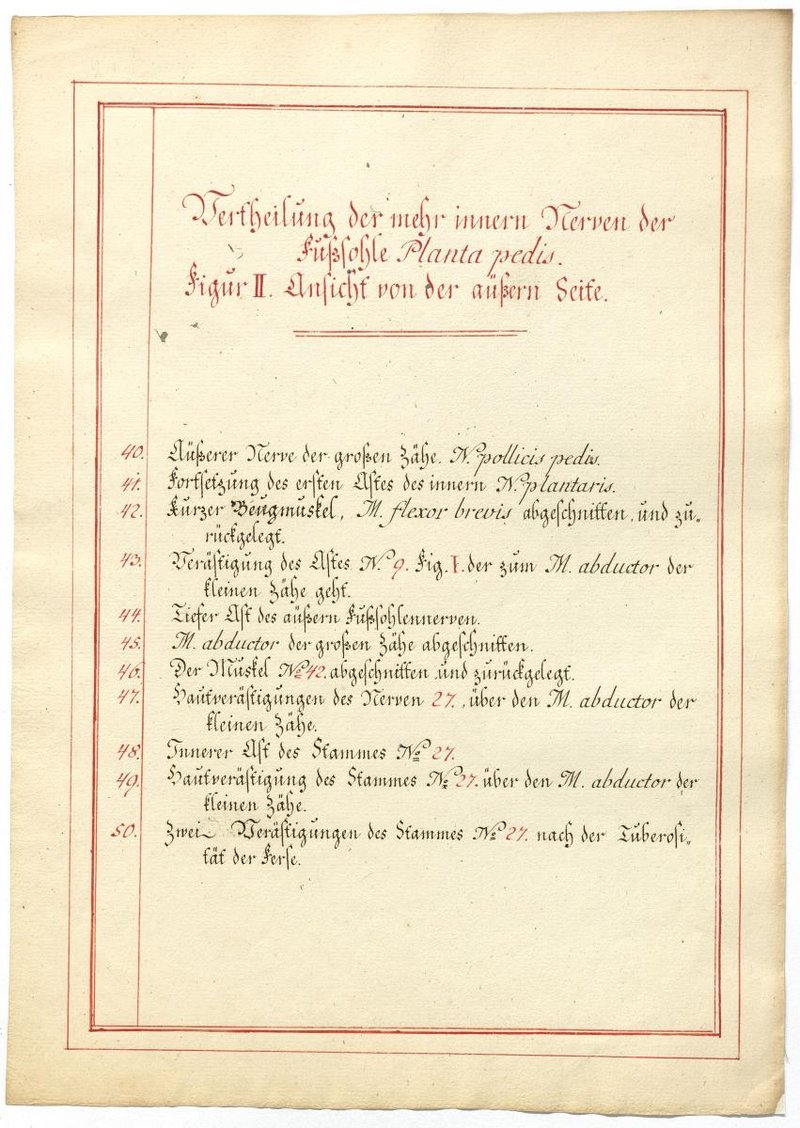 Vertheilung der mehr innern Nerven der
Fußsohle Planta pedis.
Figur II. Ansicht von der äußern Seite.
40. Äußerer Nerve der großen Zähe. N. pollicis pedis.
41. Fortsetzung des ersten Astes des innern N. plantaris.
42. Kurzer Beugmuskel, M. flexor brevis abgeschnitten, und zu„
rückgelegt.
43. Verästigung des Astes N.º 9. Fig. I. der zum M. abductor der
kleinen Zähe geht.
44. Tiefer Ast des äußern Fußsohlennerven.
45. M. abductor der großen Zähe abgeschnitten.
46. Der Muskel Nº 42. abgeschnitten und zurückgelegt.
47. Hautverästigungen des Nerven 27., über den M. abductor der
kleinen Zähe.
48. Innerer Ast des Stammes Nº 27.
49. Hautverästigung des Stammes Nº 27. über den M. abductor der
kleinen Zähe.
50. Zwei Verästigungen des Stammes Nº 27. nach der Tuberosi„
tät der Ferse.